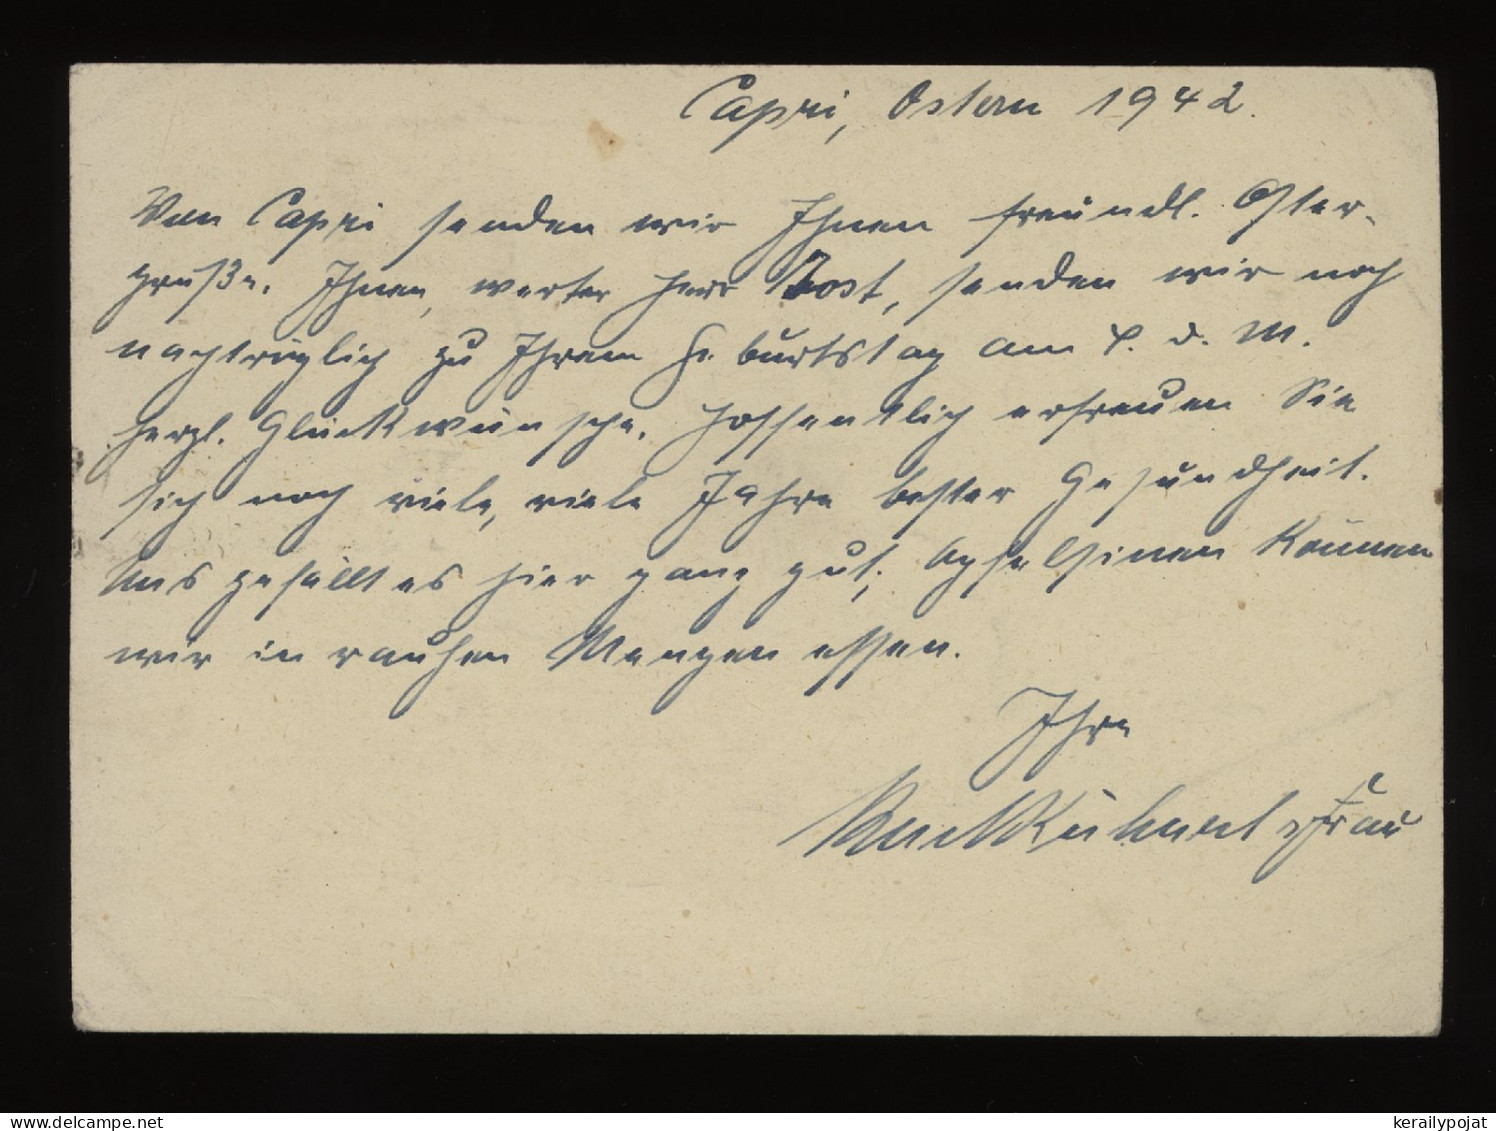 Capri, Ostern 1942.
Von Capri senden wir Ihnen freundl. Oster-
grüße. Ihnen, werter Herr Jost, senden wir noch
nachträglich zu Ihrem Geburtstag am d. M.
herzl. Glückwünsche. Hoffentlich erfreuen Sie
sich noch viele, viele Jahre bester Gesundheit.
Uns gefällt es hier ganz gut; Apfelsinen können
wir in rauhen Mengen essen.
Ihre
Kühnel u Frau
kerailypojat
delcampe.net